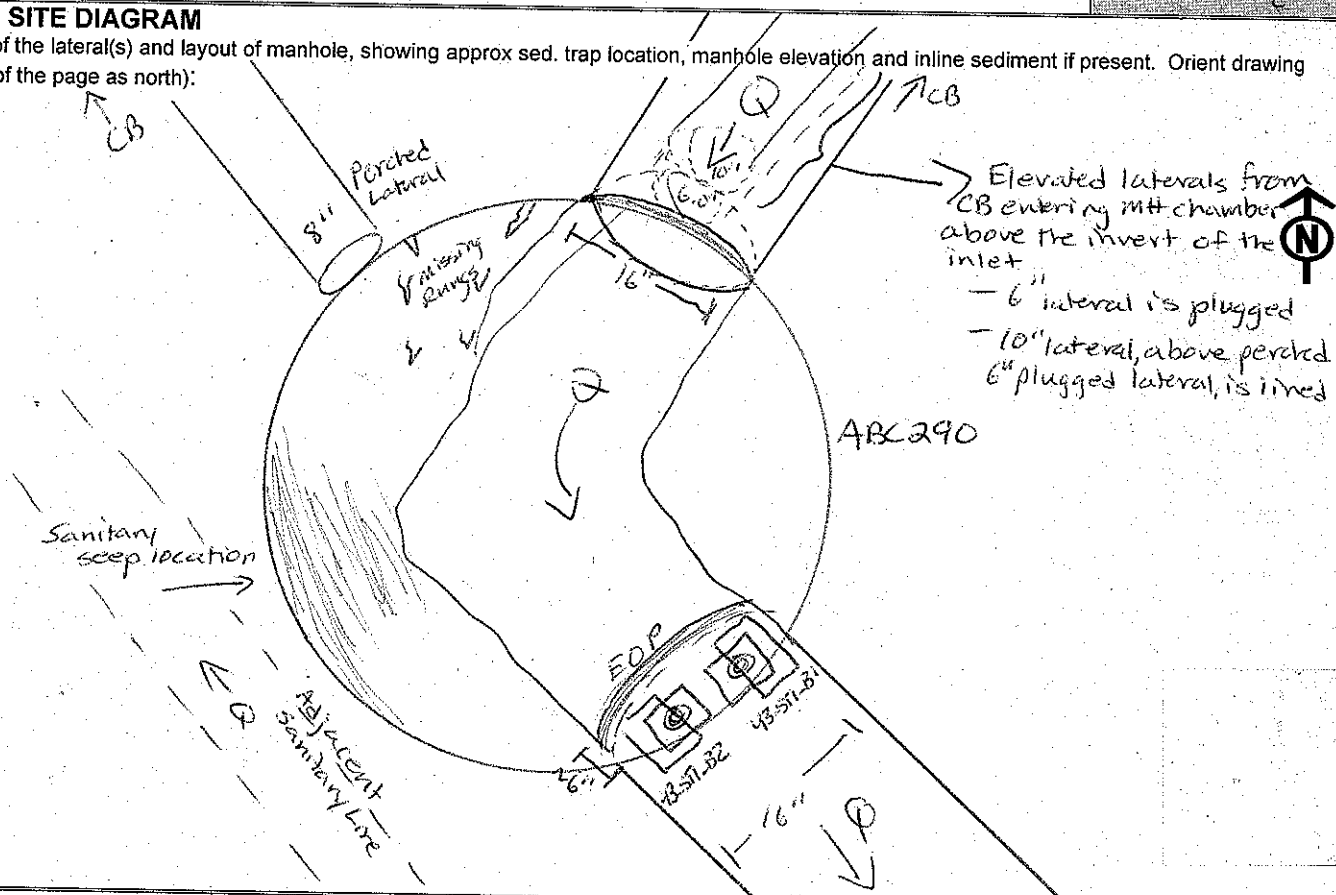 SITE DIAGRAM
of the lateral(s) and layout of manhole, showing approx sed. trap location, manhole elevation and inline sediment if present. Orient drawing
of the page as north):
CB
Q
CB
Perched
Lateral
8"
Missing
Rungs
10"
6.0"
16"
Elevated laterals from
CB entering MH chamber
above the invert of the
inlet
- 6" lateral is plugged
- 10" lateral, above perched
6" plugged lateral, is lined
N
Q
ABC290
Sanitary
seep location
Q
Adjacent
Sanitary Line
EOP
~6"
16"
Q